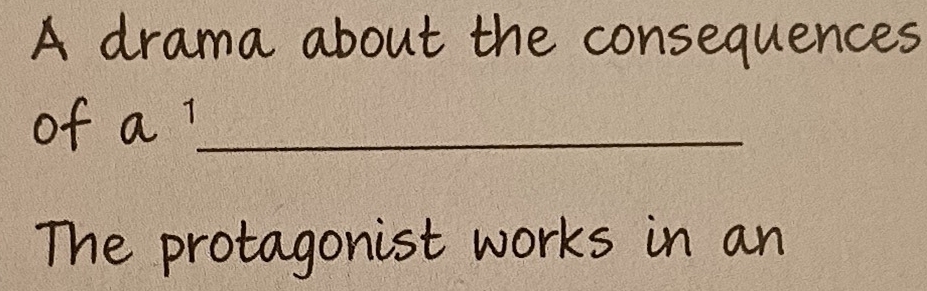 A drama about the consequences
of a 1
The protagonist works in an